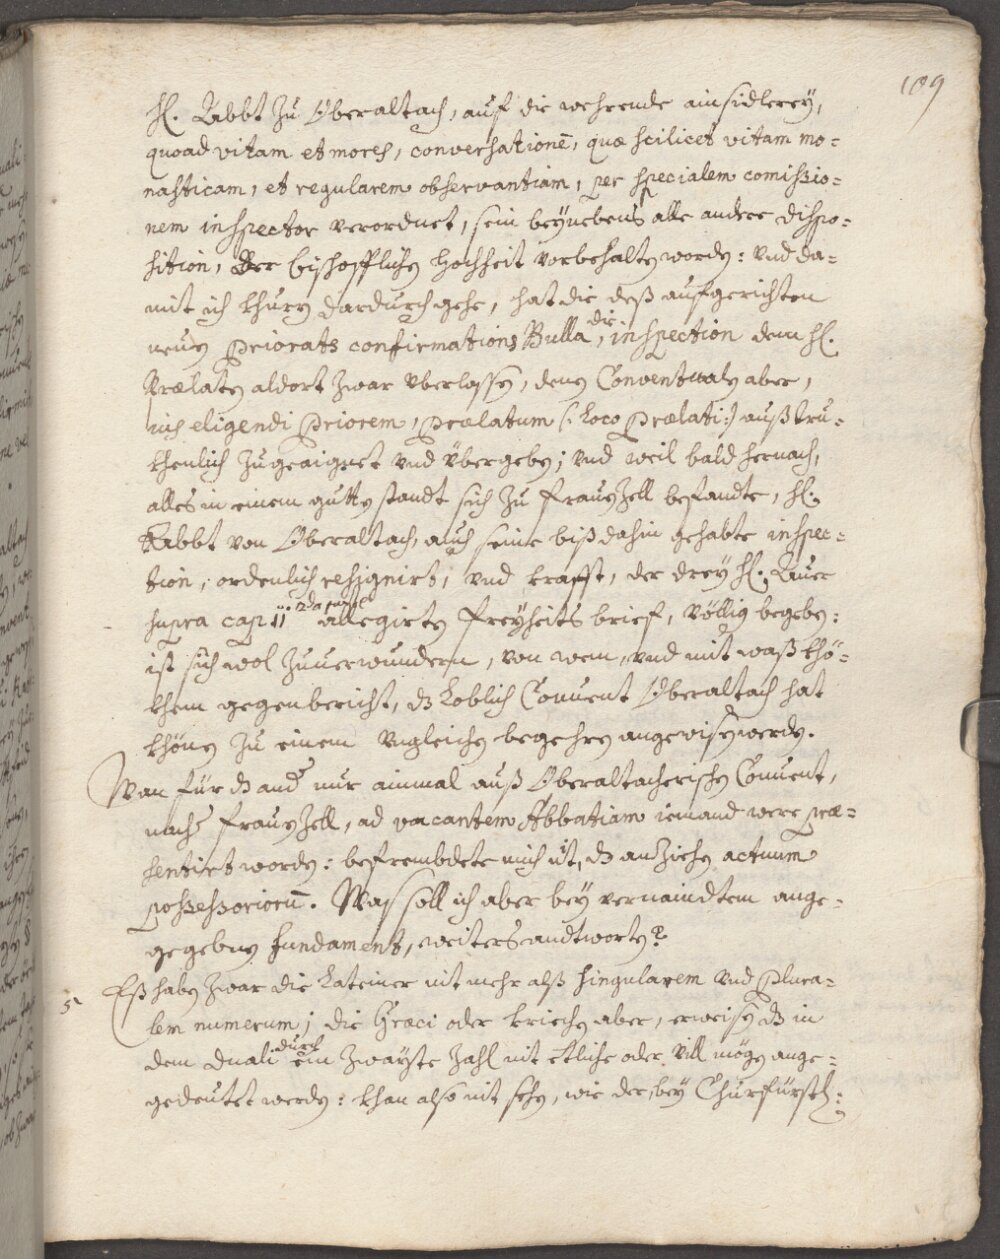 109
H. Abbt zu Oberaltach, auf die wehrende ainsidlerey,
quoad vitam et mores, conversatione̅, quæ scilicet vitam mo=
nasticam, et regularem observantiam, per specialem comißio=
nem inspector verordnet, sein beynebens alle andere dispo=
sition, Der bischofflichen Hochheit vorbehalten worden: Vnd da=
mit ich khurz dardurch gehe, hat die deß aufgerichten
neuen Priorats confirmations Bulla, die inspection dem H.
Prælaten aldort zwar vberlassen, denen Conventualn aber,
ius eligendi Priorem, Prælatum (: loco Prælati:) außtru=
khenlich zugeaignet vnd vbergeben; vnd weil bald hernach,
alles in einem gutten standt sich zu Frauenzell befandte, H.
Abbt von Oberaltach, auch seine biß dahin gehabte inspec=
tion, ordenlich resignirt, vnd krafft, der drey H.
supra cap: 11 allegirten Freyheits brief, völlig begeben:
ist sich wol zuuerwundern, von wem, vnd mit waß khö=
khem gegenbericht, dz Loblich Conuent Oberaltach hat
khönen zu einem vngleichen begehren angewisen werden.
Wan für dz and nur ainmal auß Oberaltacherischen Conuent,
nach Frauenzell, ad vacantem Abbatiam iemand were præ=
sentirt worden: befrembdete mich nit, dz anziehen actuum
possessorioru̅. Was soll ich aber bey vermaindtem ange=
gegebnen fundament, weiters andtworten?
5 Eß haben zwar die Lateiner nit mehr alß singularem vnd plura=
lem numerum; die Græci oder kriechen aber, erweisen dz in
dem duali durch ein zwayte zahl nit etliche oder vill mögen ange=
gedeutet werden: khan also nit sehen, wie der, bey Churfürstl: